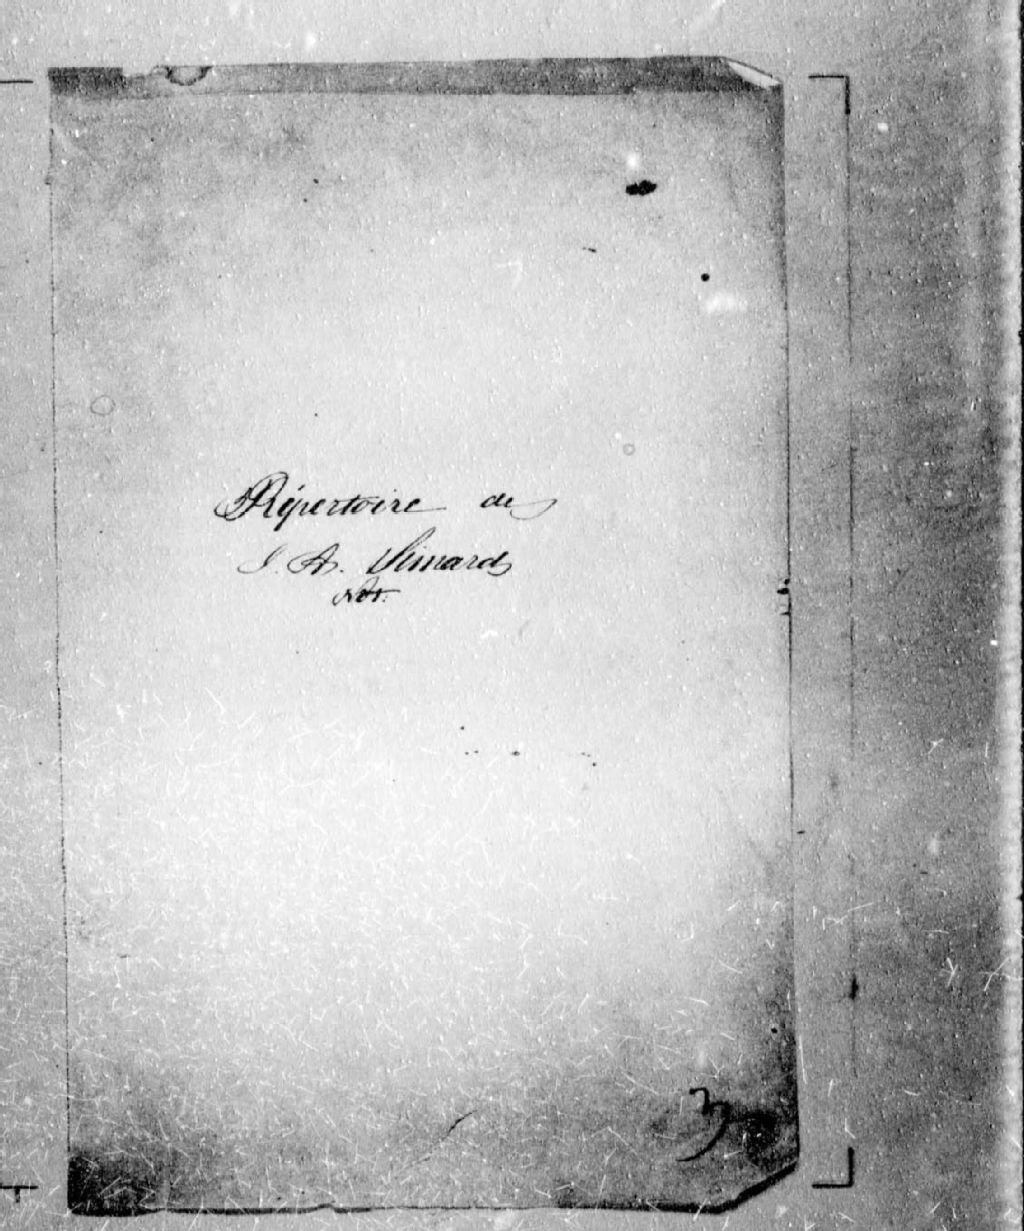 Répertoire de
J. A. Simard
Not.
3